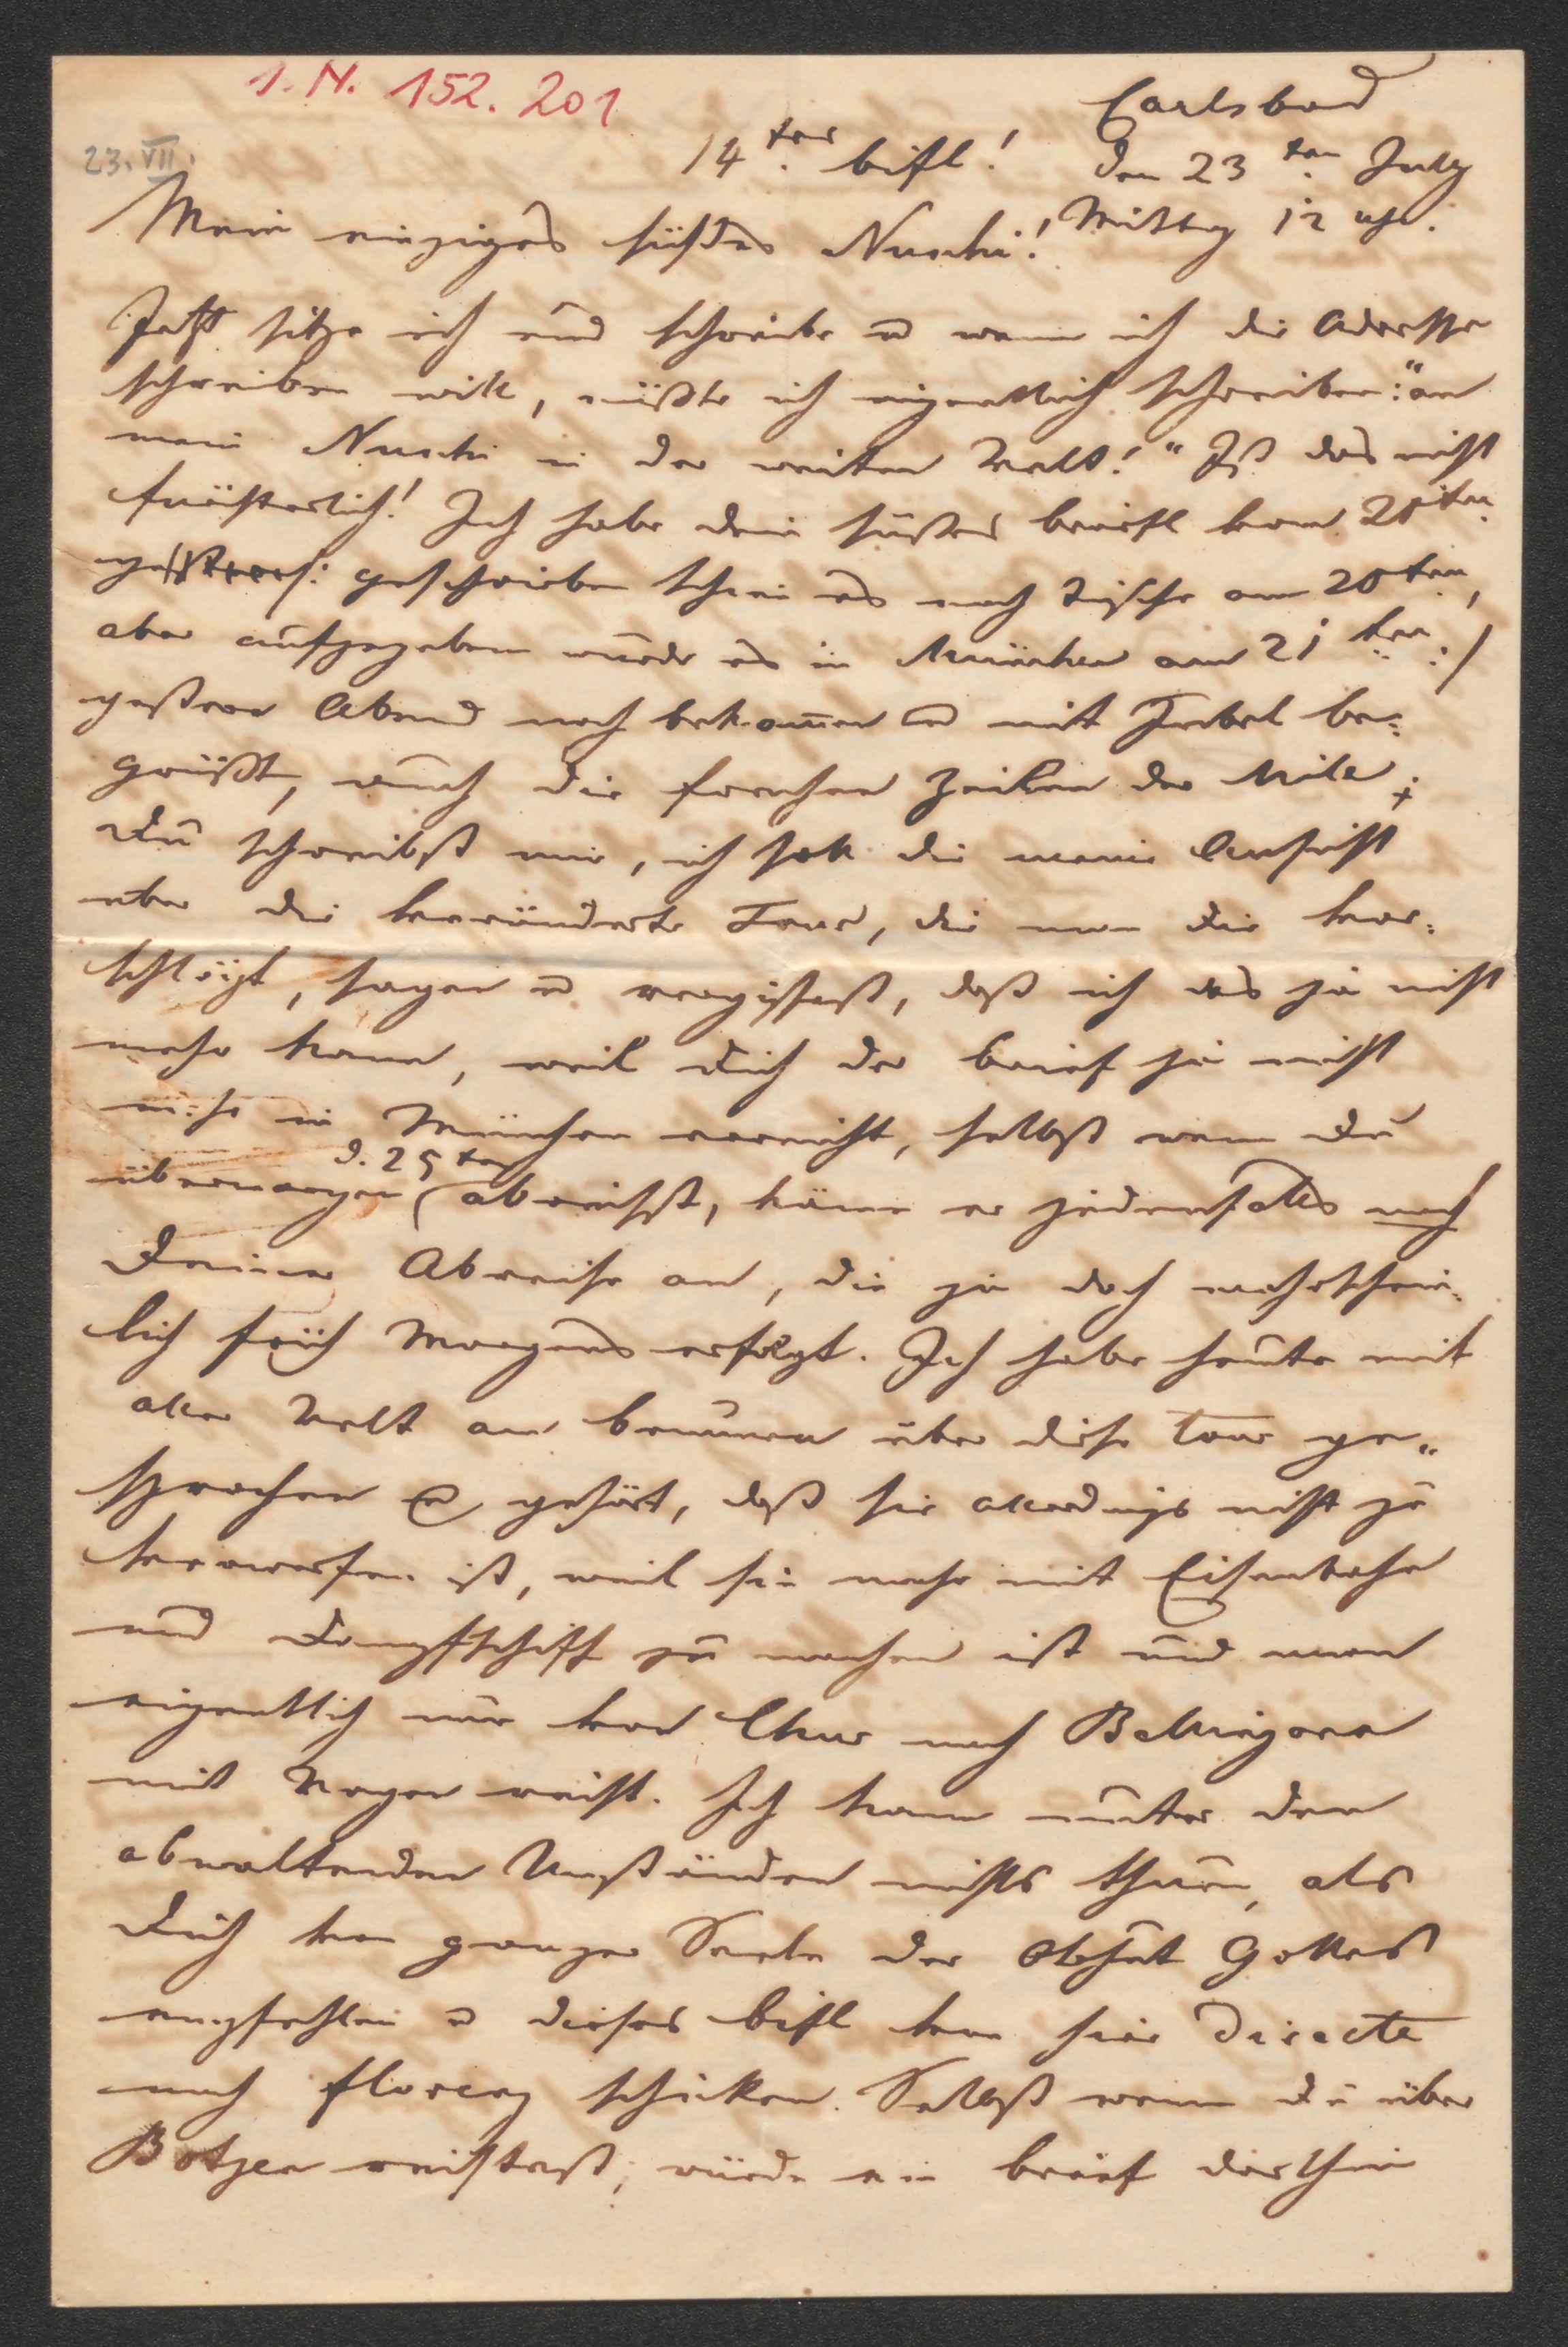 I.N. 152.201
23. VII.
Carlsbad
14ter. bifl! den 23ten. July
Mittag 12 Uhr.
Mein einziges süßes Nuschi!
Jetzt sitze ich und schreibe u wenn ich die Adresse
schreiben will, müßte ich eigentlich schreiben: "an
mein Nuschi in der weiten Welt!" Ist das nicht
fürchterlich! Ich habe dein süßes briefl vom 20ten.
/: geschrieben schein es nach Tische am 20ten.,
aber aufgegeben wurde es in München am 21ten. :/
gestern Abend noch bekommen u mit Jubel be-
grüßt, auch die Zeilen der Mila;
Du schreibst mir, ich soll dir meine Ansicht
über die veränderte Tour, die man Dir vor-
schlägt, sagen u vergissest, daß ich das ja nicht
mehr kann, weil Dich der brief ja nicht
mehr in München erreicht, selbst wenn Du
übermorgen (d. 25ten abreisst, käme er jedenfalls nach
Deiner Abreise an, die ja doch wahrschein-
lich früh Morgens erfolgt. Ich habe heute mit
aller Welt am brunnen über diese Tour ge-
sprochen u gehört, daß sie allerdings nicht zu
verwerfen ist, weil sie mehr mit Eisenbahn
und Dampfschiff zu machen ist und man
eigentlich nur von Chur nach Bellinzona
mit Wagen reist. Ich kann unter den
obwaltenden Umständen nichts thun, als
Dich von ganzer Seele der Obhut Gottes
empfehlen u dieses bifl von hier directe
nach Florenz schicken. Selbst wenn Du über
Botzen reistest, würde ein brief dorthin